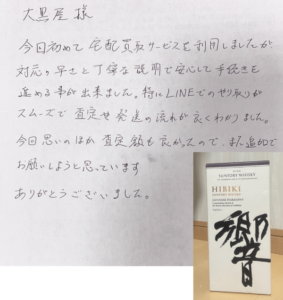 大黒屋 様
今日初めて宅配買取サービスを利用しましたが
対応の早さと丁寧な説明で安心して手続きを
進める事が出来ました。特にLINEでのやり取りが
スムーズで査定や発送の流れが良くわかりました。
今回思いのほか査定額も良かったので、また追加で
お願いしようと思っています
ありがとうございました。
SUNTORY WHISKY
HIBIKI
響